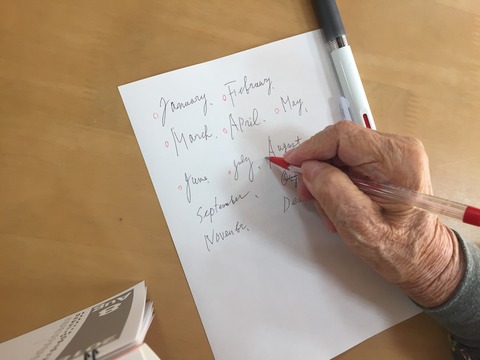 January. February.
March. April. May.
June. July. August
September.
8
AUG